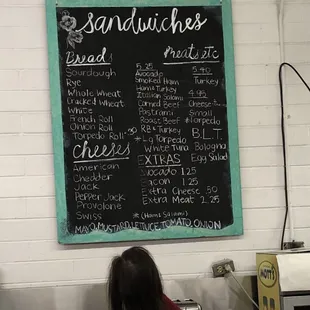 Sandwiches
Bread
Sourdough
Rye
Whole Wheat
Cracked Wheat
White
French Roll
Onion Roll
Torpedo Roll .30
Cheeses
American
Chedder
Jack
Pepper Jack
Provolone
Swiss
5.25
Avocado
Smoked Ham
Ham & Turkey
Italian Salami
Corned Beef
Pastrami
Roast Beef
RB & Turkey
*Lg Torpedo
White Tuna
EXTRAS
Avocado 1.25
Bacon 1.25
Extra Cheese .50
Extra Meat 2.25
*(Ham & Salami)
Meats etc
5.40
Turkey
4.95
Cheese
Small
*Torpedo
B.L.T.
Bologna
Egg Salad
MAYO, MUSTARD, LETTUCE, TOMATO, ONION